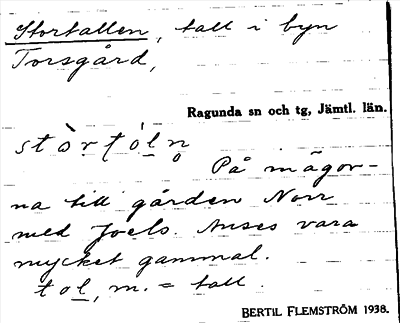 Stortallen, tall i byn
Torsgård,
Ragunda sn och tg, Jämtl. län.
stòr̥ṭóḷn̥
På mågor-
na till gården Norr
med Joels. Anses vara
mycket gammal.
tol, m. = tall.
BERTIL FLEMSTRÖM 1938.